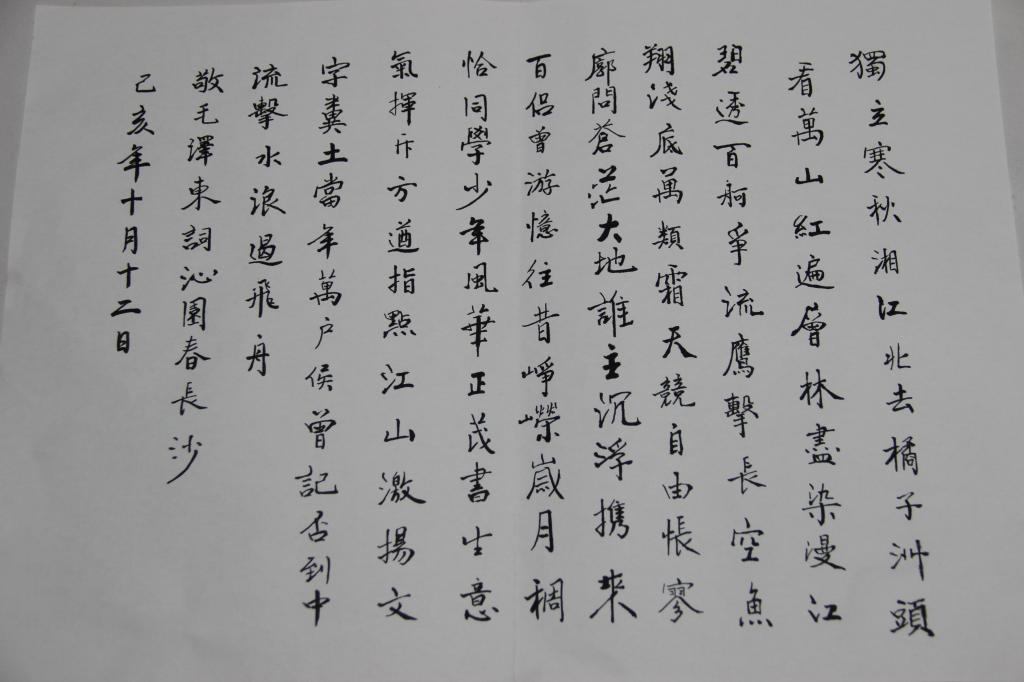 獨立寒秋湘江北去橘子洲頭
看萬山紅遍層林盡染漫江
碧透百舸爭流鷹擊長空魚
翔淺底萬類霜天競自由悵寥
廓問蒼茫大地誰主沉浮攜來
百侶曾游憶往昔崢嶸歲月稠
恰同學少年風華正茂書生意
氣揮斥方遒指點江山激揚文
字糞土當年萬户侯曾記否到中
流擊水浪遏飛舟
敬毛澤東詞沁園春長沙
己亥年十月十二日